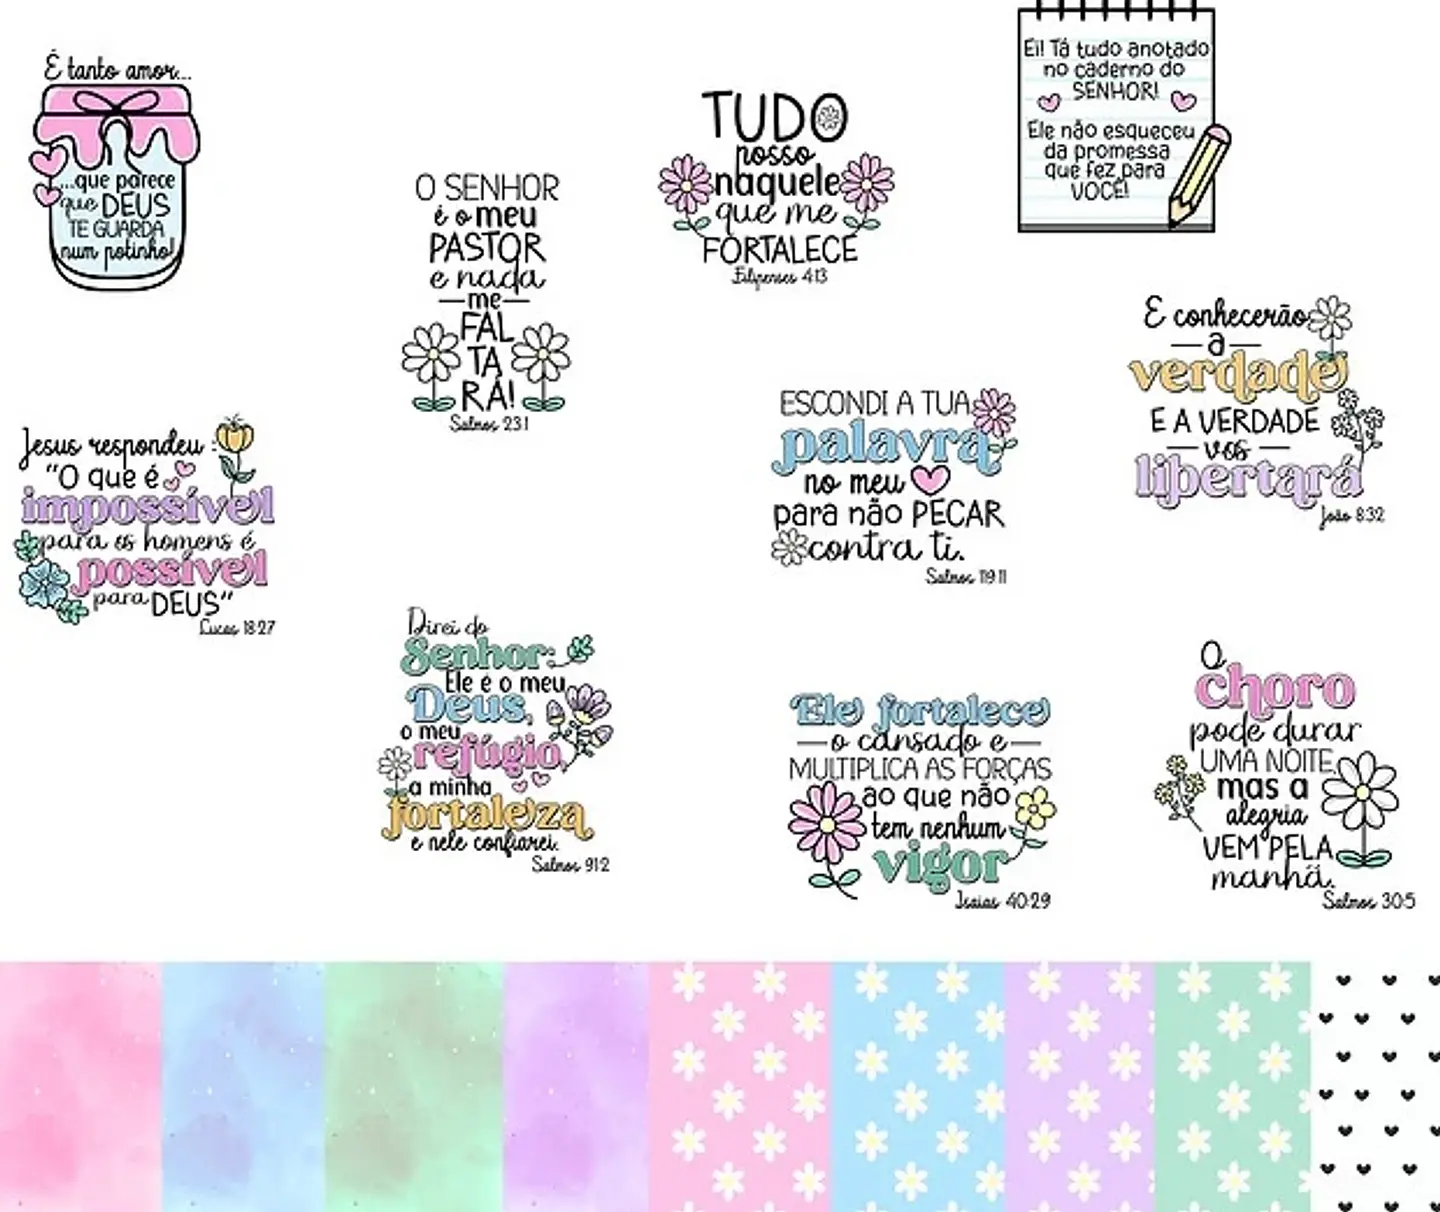 É tanto amor...
...que parece
que DEUS
TE GUARDA
num potinho!
O SENHOR
é o meu
PASTOR
e nada
me
FAL
TA
RÁ!
Salmos 23:1
TUDO
posso
naquele
que me
FORTALECE
Filipenses 4:13
Ei! Tá tudo anotado
no caderno do
SENHOR!
Ele não esqueceu
da promessa
que fez para
VOCÊ!
Jesus respondeu:
"O que é
impossível
para os homens é
possível
para DEUS"
Lucas 18:27
ESCONDI A TUA
palavra
no meu
para não PECAR
contra ti.
Salmos 119:11
E conhecerão
a
verdade
E A VERDADE
vos
libertará
João 8:32
Direi do
Senhor:
Ele é o meu
Deus,
o meu
refúgio,
a minha
fortaleza
e nele confiarei.
Salmos 91:2
Ele fortalece
o cansado e
MULTIPLICA AS FORÇAS
ao que não
tem nenhum
vigor
Isaías 40:29
O
choro
pode durar
UMA NOITE
mas a
alegria
VEM PELA
manhã.
Salmos 30:5